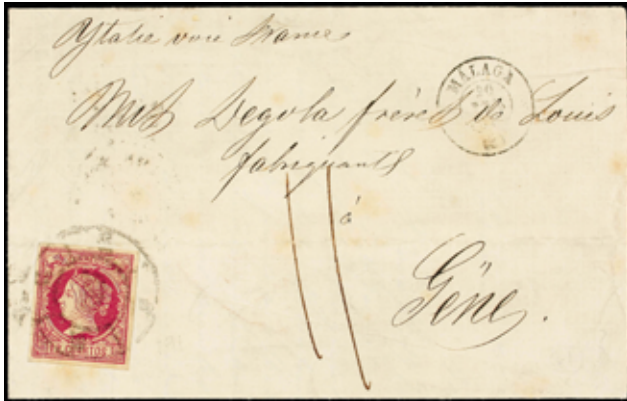 Ytalie voie France
MALAGA
20
Mrs Degola frères de Louis
fabriquants
à
11
Gêne.
CUARTOS